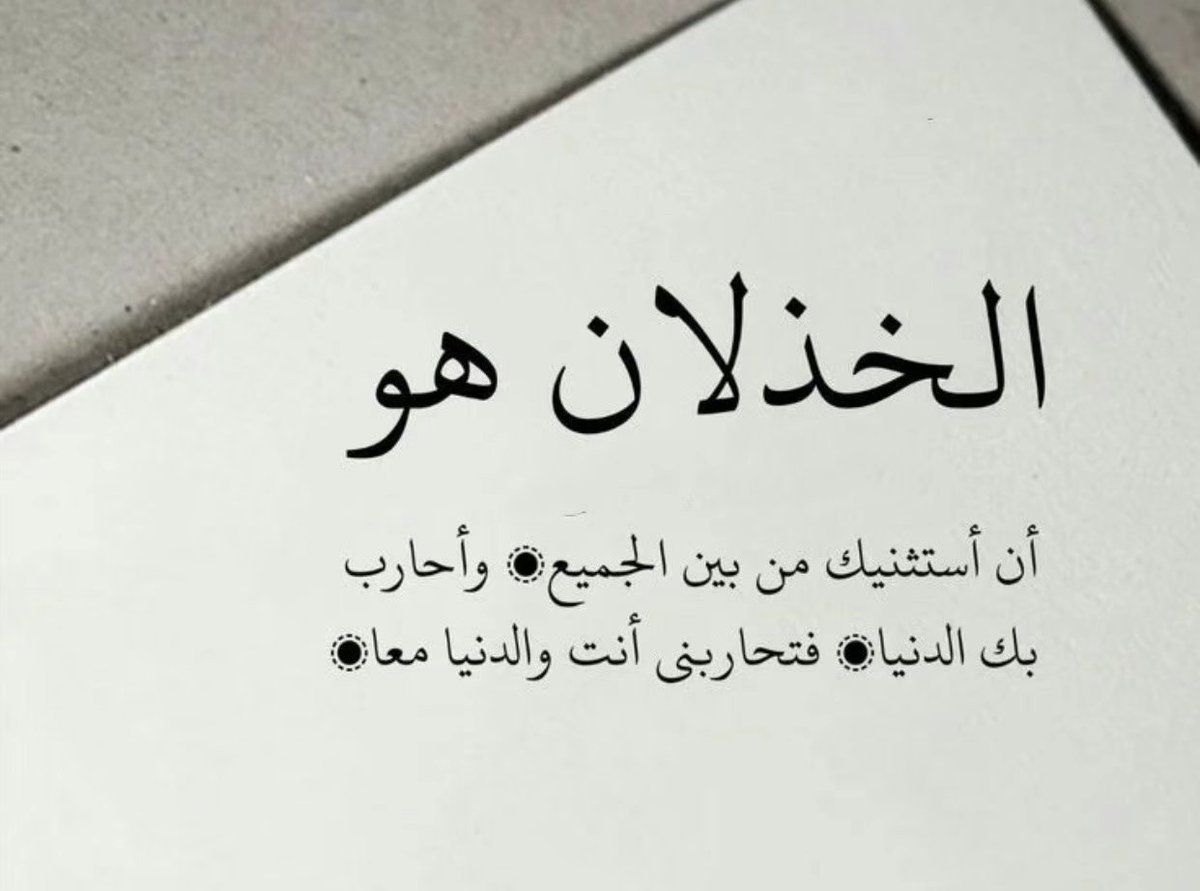 الخذلان هو
أن أستثنيك من بين الجميع وأحارب
بك الدنيا فتحاربنى أنت والدنيا معا